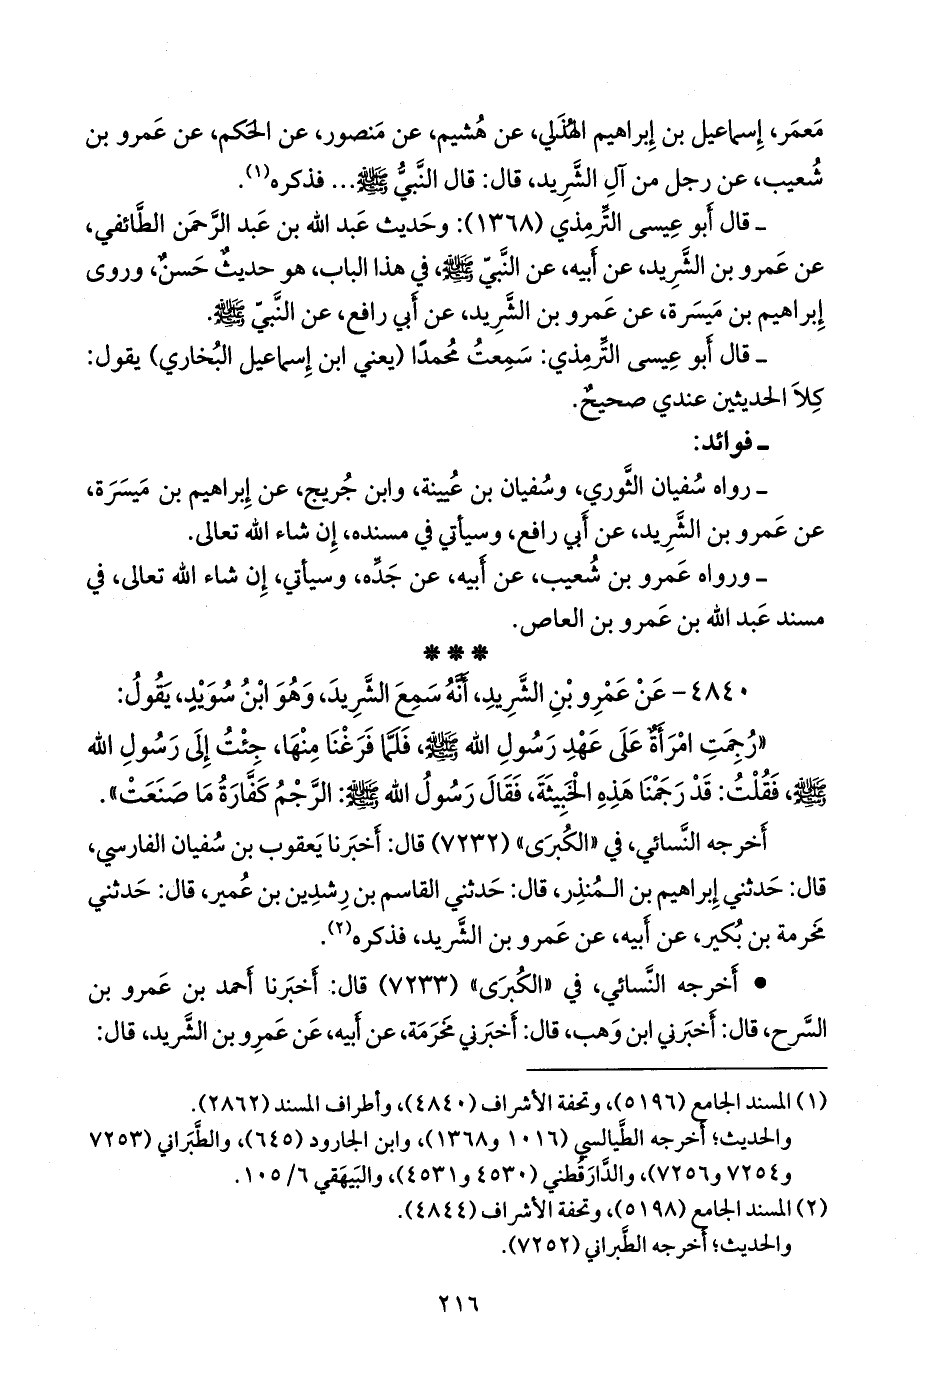 مَعمَر، إِسماعيل بن إِبراهيم الهُذَلي، عن هُشيم، عن مَنصور، عن الحَكم، عن عَمرو بن
شُعيب، عن رجل من آلِ الشَّرِيد، قال: قال النَّبيُّ ﷺ... فذكره(١).
ـ قال أَبو عِيسى التِّرمِذي (١٣٦٨): وحَديث عَبد الله بن عَبد الرَّحمَن الطَّائفي،
عن عَمرو بن الشَّرِيد، عن أَبيه، عن النَّبيِّ ﷺ، في هذا الباب، هو حديثٌ حَسنٌ، وروى
إِبراهيم بن مَيسَرة، عن عَمرو بن الشَّرِيد، عن أَبي رافع، عن النَّبيِّ ﷺ.
ـ قال أَبو عِيسى التِّرمِذي: سَمِعتُ مُحمدًا (يعني ابن إِسماعيل البُخاري) يقول:
كِلاَ الحديثين عندي صحيحٌ.
ـ فوائد:
ـ رواه سُفيان الثَّوري، وسُفيان بن عُيينة، وابن جُريج، عن إِبراهيم بن مَيسَرَة،
عن عَمرو بن الشَّرِيد، عن أَبي رافع، وسيأتي في مسنده، إِن شاء الله تعالى.
ـ ورواه عَمرو بن شُعيب، عن أَبيه، عن جَدِّه، وسيأتي، إِن شاء الله تعالى، في
مسند عَبد الله بن عَمرو بن العاص.
* * *
٤٨٤٠- عَنْ عَمْرِو بْنِ الشَّرِيدِ، أَنَّهُ سَمِعَ الشَّرِيدَ، وَهُوَ ابْنُ سُوَيْدٍ، يَقُولُ:
«رُجِمَتِ امْرَأَةٌ عَلَى عَهْدِ رَسُولِ الله ﷺ، فَلَمَّا فَرَغْنَا مِنْهَا، جِئْتُ إِلَى رَسُولِ الله
ﷺ، فَقُلْتُ: قَدْ رَجَمْنَا هَذِهِ الْخَبِيثَةَ، فَقَالَ رَسُولُ الله ﷺ: الرَّجْمُ كَفَّارَةُ مَا صَنَعَتْ».
أَخرجه النَّسائي، في «الكُبرَى» (٧٢٣٢) قال: أَخبَرنا يَعقوب بن سُفيان الفارسي،
قال: حَدثني إِبراهيم بن المُنذِر، قال: حَدثني القاسم بن رِشدِين بن عُمير، قال: حَدثني
مَخرمة بن بُكير، عن أَبيه، عن عَمرو بن الشَّرِيد، فذكره(٢).
• أَخرجه النَّسائي، في «الكُبرَى» (٧٢٣٣) قال: أَخبَرنا أَحمد بن عَمرو بن
السَّرح، قال: أَخبَرني ابن وَهب، قال: أَخبَرني مَخرَمَة، عن أَبيه، عَن عَمرِو بن الشَّرِيد، قال:
(١) المسند الجامع (٥١٩٦)، وتحفة الأشراف (٤٨٤٠)، وأطراف المسند (٢٨٦٢).
والحديث؛ أَخرجه الطَّيالسي (١٠١٦ و١٣٦٨)، وابن الجارود (٦٤٥)، والطَّبَراني (٧٢٥٣
و٧٢٥٤ و٧٢٥٦)، والدَّارَقُطني (٤٥٣٠ و٤٥٣١)، والبَيهَقي ٦/ ١٠٥.
(٢) المسند الجامع (٥١٩٨)، وتحفة الأشراف (٤٨٤٤).
والحديث؛ أَخرجه الطَّبراني (٧٢٥٢).
٢١٦